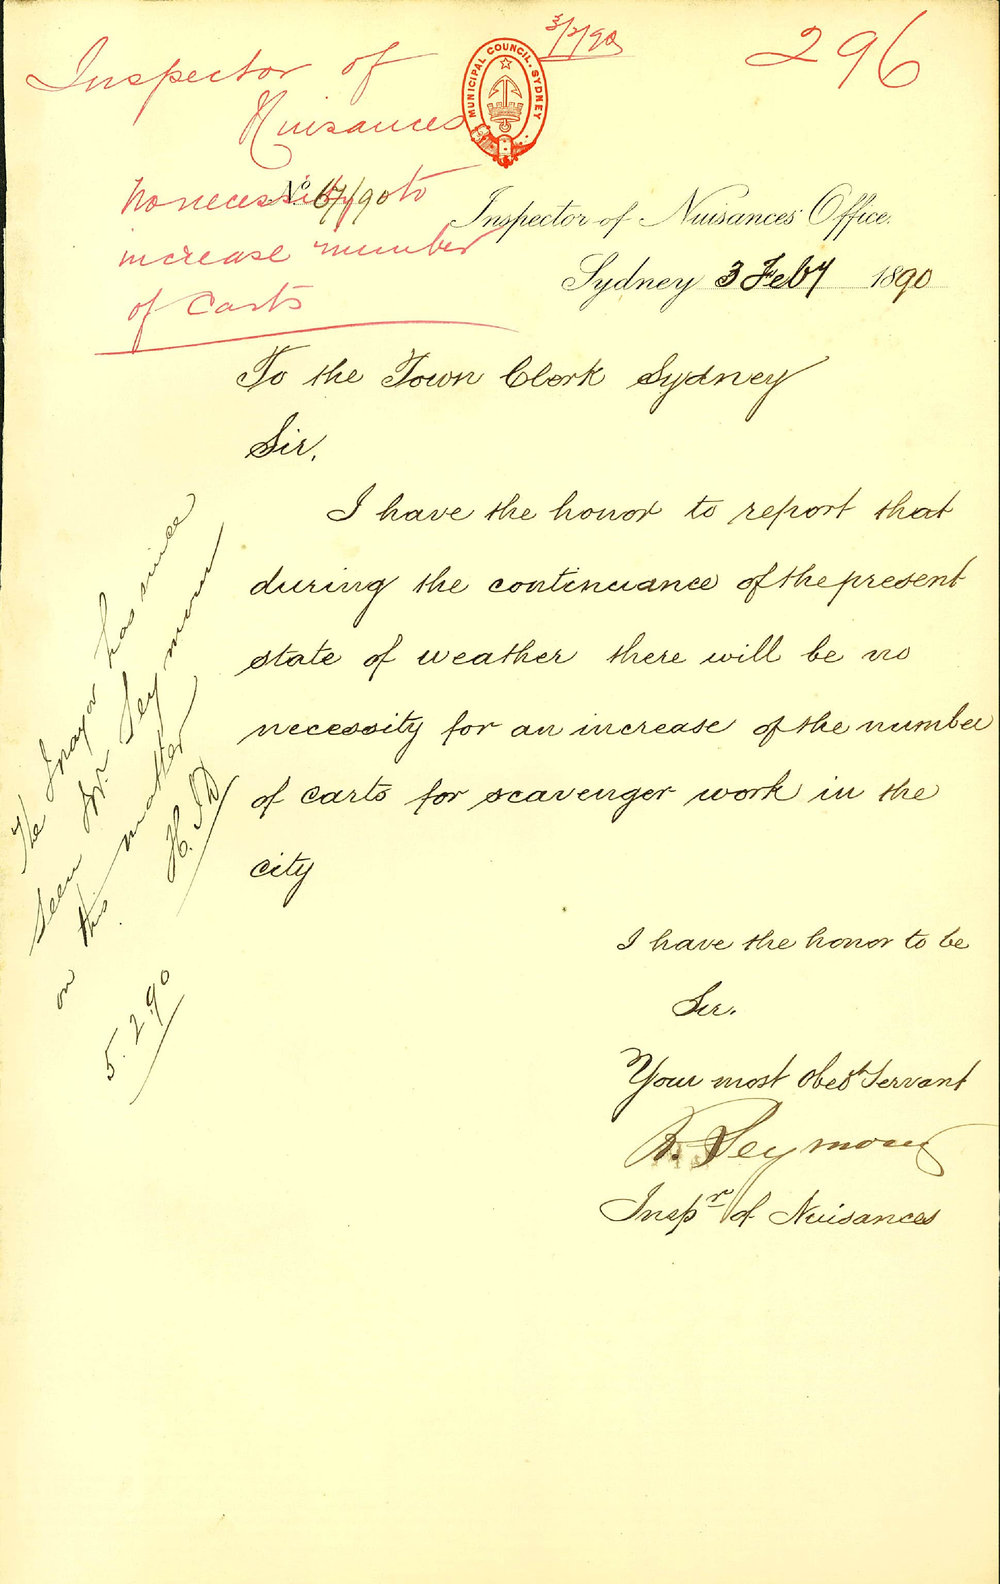 3/2/90
296
Inspector of
Nuisances
MUNICIPAL COUNCIL. SYDNEY
No necessity to
increase number
of Carts
No. 67/90
Inspector of Nuisances Office.
Sydney 3 Feby 1890
To the Town Clerk Sydney
Sir,
I have the honor to report that
during the continuance of the present
state of weather there will be no
necessity for an increase of the number
of carts for scavenger work in the
city
I have the honor to be
Sir.
Your most Obedt Servant
R. Seymour
Inspr of Nuisances
The Mayor has since
seen Mr. Seymour
on this matter
5.2.90